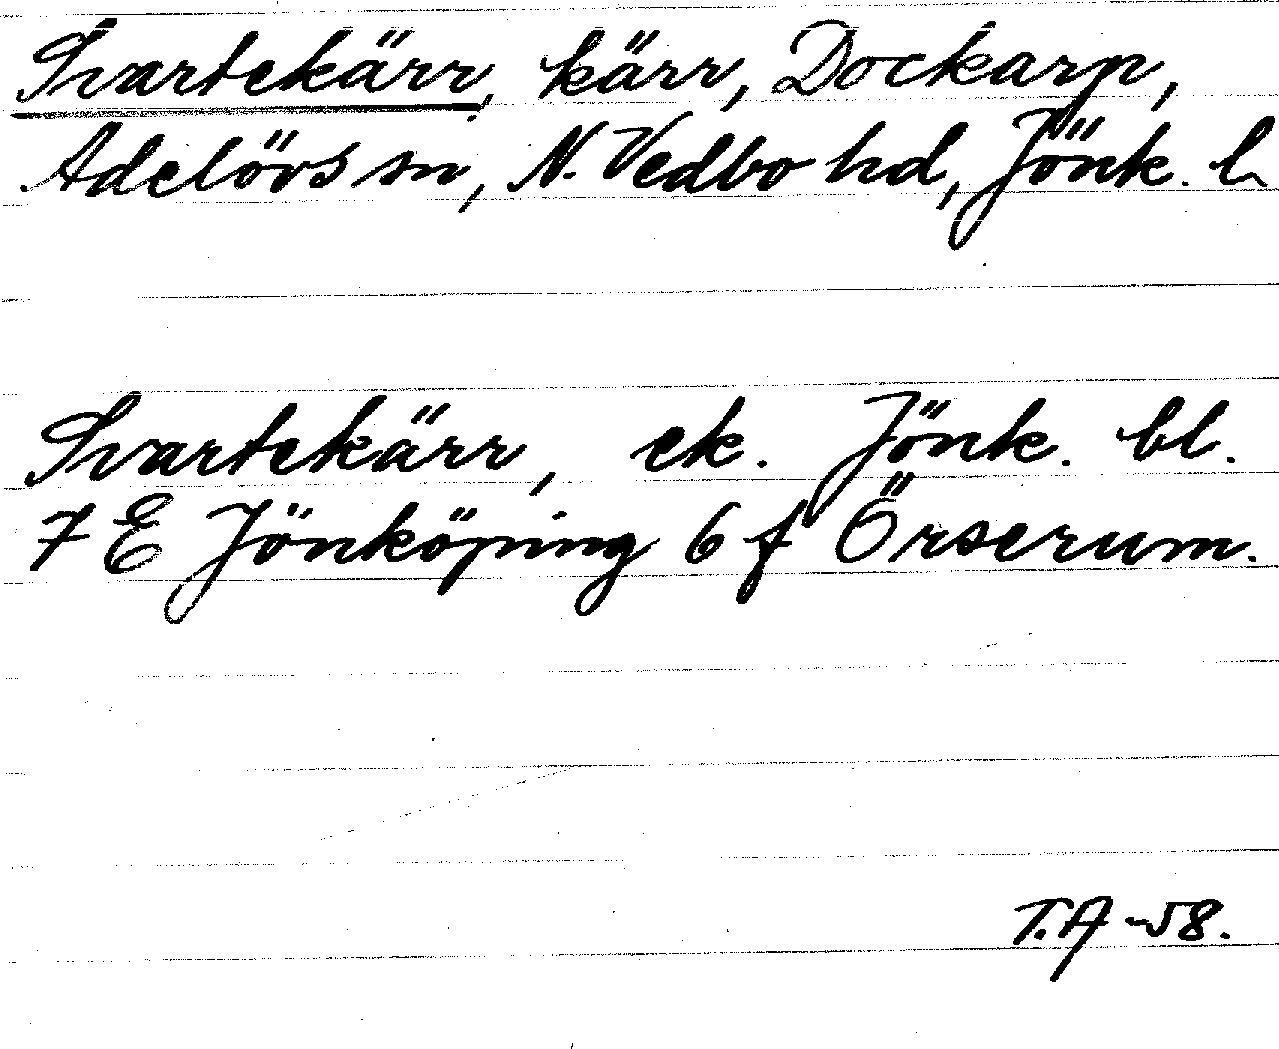 Svartekärr, kärr, Dockarp,
Adelövs sn, N. Vedbo hd, Jönk. l
Svartekärr, ek. Jönk. bl.
7 E Jönköping 6 f Örserum.
T.A -58.